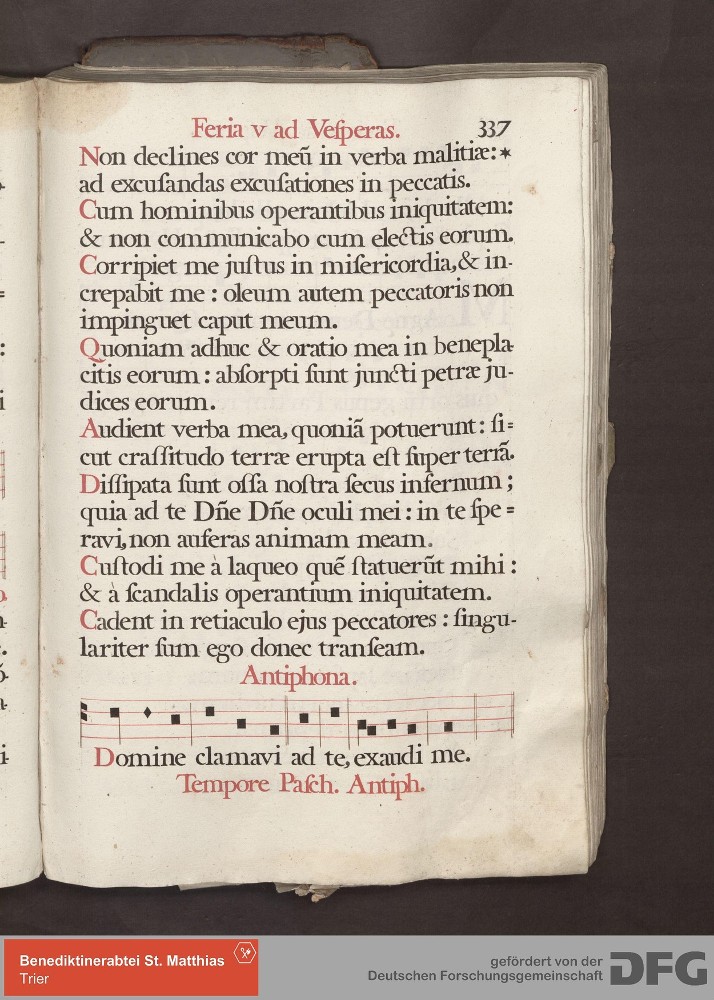 Feria v ad Veſperas. 337
Non declines cor meũ in verba malitiæ: *
ad excuſandas excuſationes in peccatis.
Cum hominibus operantibus iniquitatem:
& non communicabo cum electis eorum.
Corripiet me juſtus in miſericordia, & in-
crepabit me : oleum autem peccatoris non
impinguet caput meum.
Quoniam adhuc & oratio mea in benepla-
citis eorum : abſorpti ſunt juncti petræ ju-
dices eorum.
Audient verba mea, quoniã potuerunt : ſi=
cut craſſitudo terræ erupta eſt ſuper terrã.
Diſſipata ſunt oſſa noſtra ſecus infernum ;
quia ad te Dñe Dñe oculi mei : in te ſpe=
ravi, non auferas animam meam.
Cuſtodi me à laqueo quẽ ſtatuerũt mihi :
& à ſcandalis operantium iniquitatem.
Cadent in retiaculo ejus peccatores : ſingu-
lariter ſum ego donec tranſeam.
Antiphona.
Domine clamavi ad te, exaudi me.
Tempore Paſch. Antiph.
Benediktinerabtei St. Matthias
Trier
gefördert von der
Deutschen Forschungsgemeinschaft
DFG